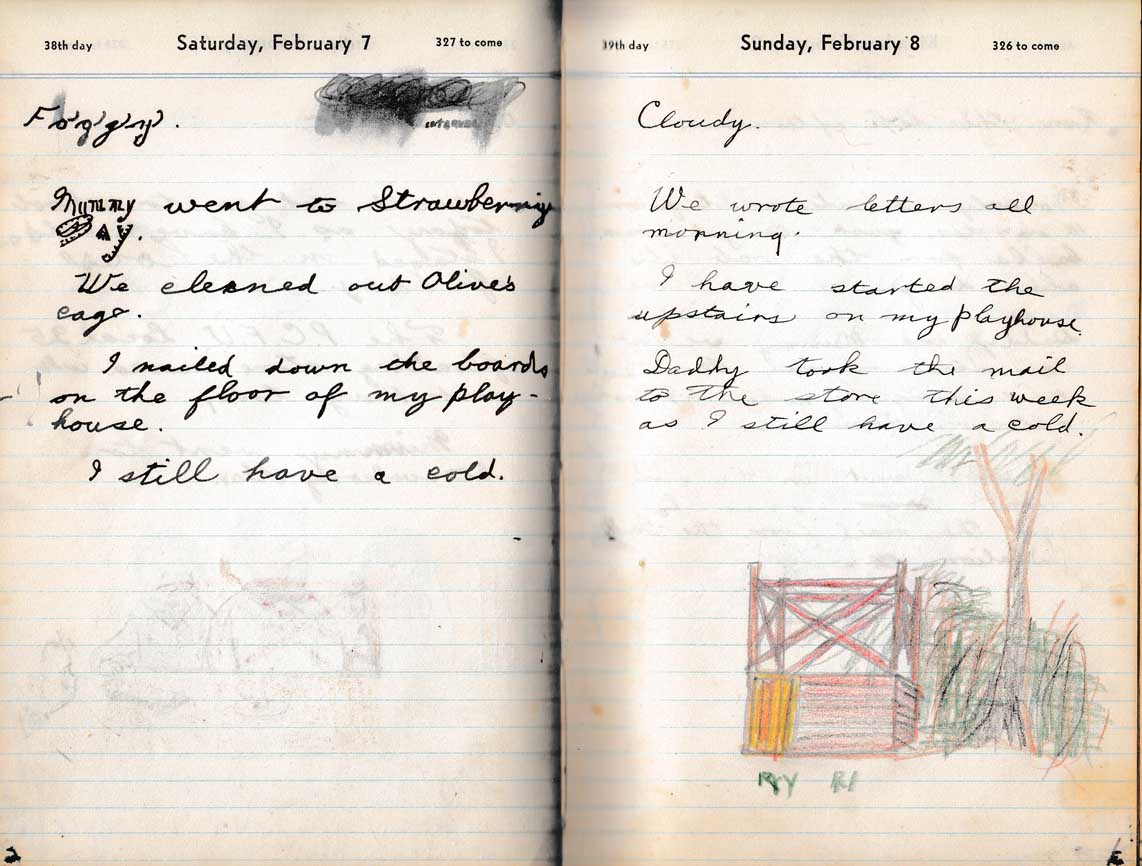 38th day Saturday, February 7 327 to come
Foggy.
Mummy went to Strawberry
Bay.
We cleaned out Olive's
cage.
I nailed down the boards
on the floor of my play-
house.
I still have a cold.
39th day Sunday, February 8 326 to come
Cloudy.
We wrote letters all
morning.
I have started the
upstairs on my playhouse.
Daddy took the mail
to the store this week
as I still have a cold.